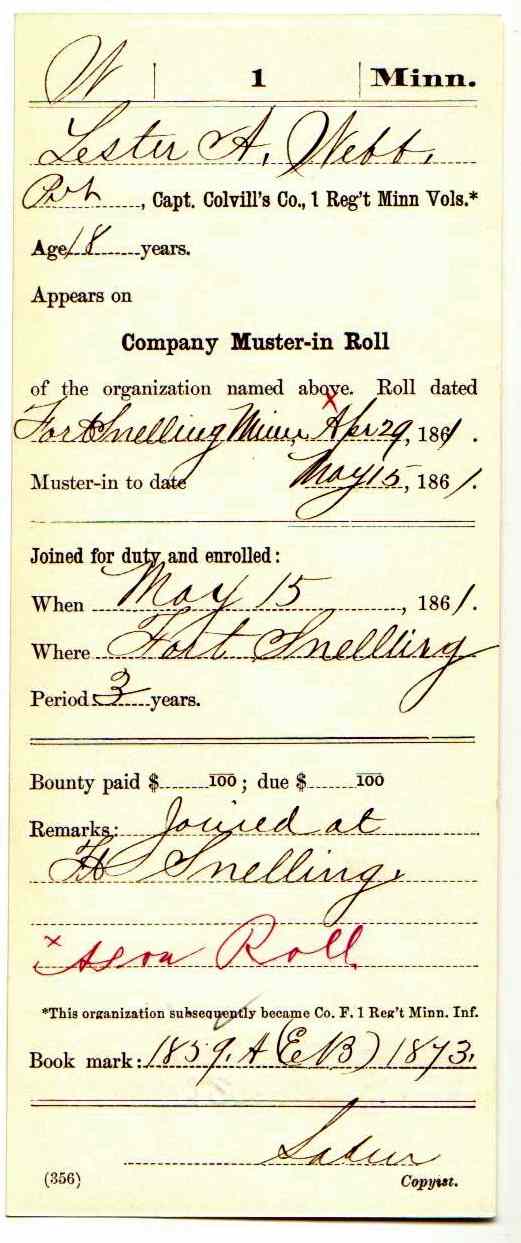 W | 1 | Minn.
Lester A. Webb.
Pvt, Capt. Colvill's Co., 1 Reg't Minn Vols.*
Age 18 years.
Appears on
Company Muster-in Roll
of the organization named above. Roll dated
x
Fort Snelling Minn, Apr 29, 1861.
Muster-in to date May 15, 1861.
Joined for duty and enrolled:
When May 15, 1861.
Where Fort Snelling
Period 3 years.
Bounty paid $ 100; due $ 100
Remarks: Joined at
Ft Snelling.
x As on Roll
*This organization subsequently became Co. F. 1 Reg't Minn. Inf.
Book mark: 1859. A (EB) 1873.
(356) Copyist.